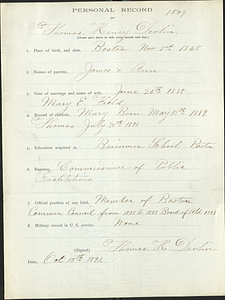 PERSONAL RECORD
OF
Thomas Henry Devlin
1. Place of birth, and date, Boston Nov 5th 1848
2. Names of parents, James & Ann
3. Date of marriage and name of wife, June 26th
Mary E. Field
4. Record of children, Mary Born May 15th
Thomas July 30th
5. Education acquired at Brimmer School Boston
6. Business, Commissioner of Public
Institutions
7. Official position of any kind, Member of Boston
Common Council from 1880 to 1883 Board of Ald. 1883
8. Military record in U.S. service, None
(Signed) Thomas H. Devlin
Date, Oct 13th